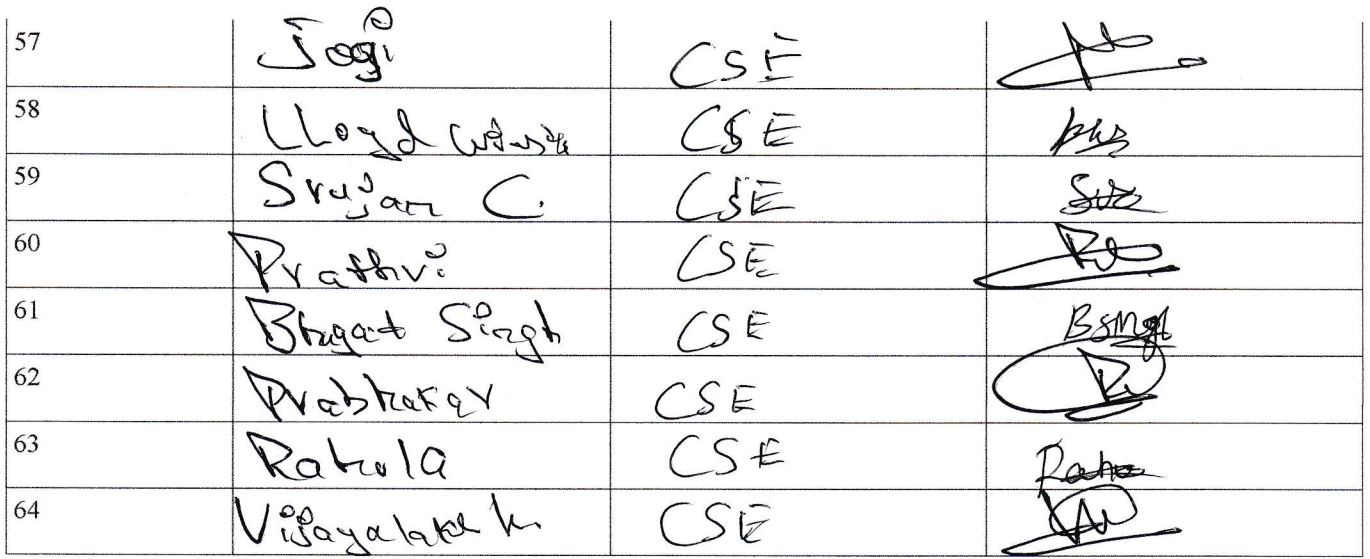 57 Jogi CSE
58 LLoyd CSE
59 Srujan C. CSE
60 Prathvi CSE
61 Bhagat Singh CSE BSingh
62 Prabhakar CSE
63 Rahula CSE
64 CSE